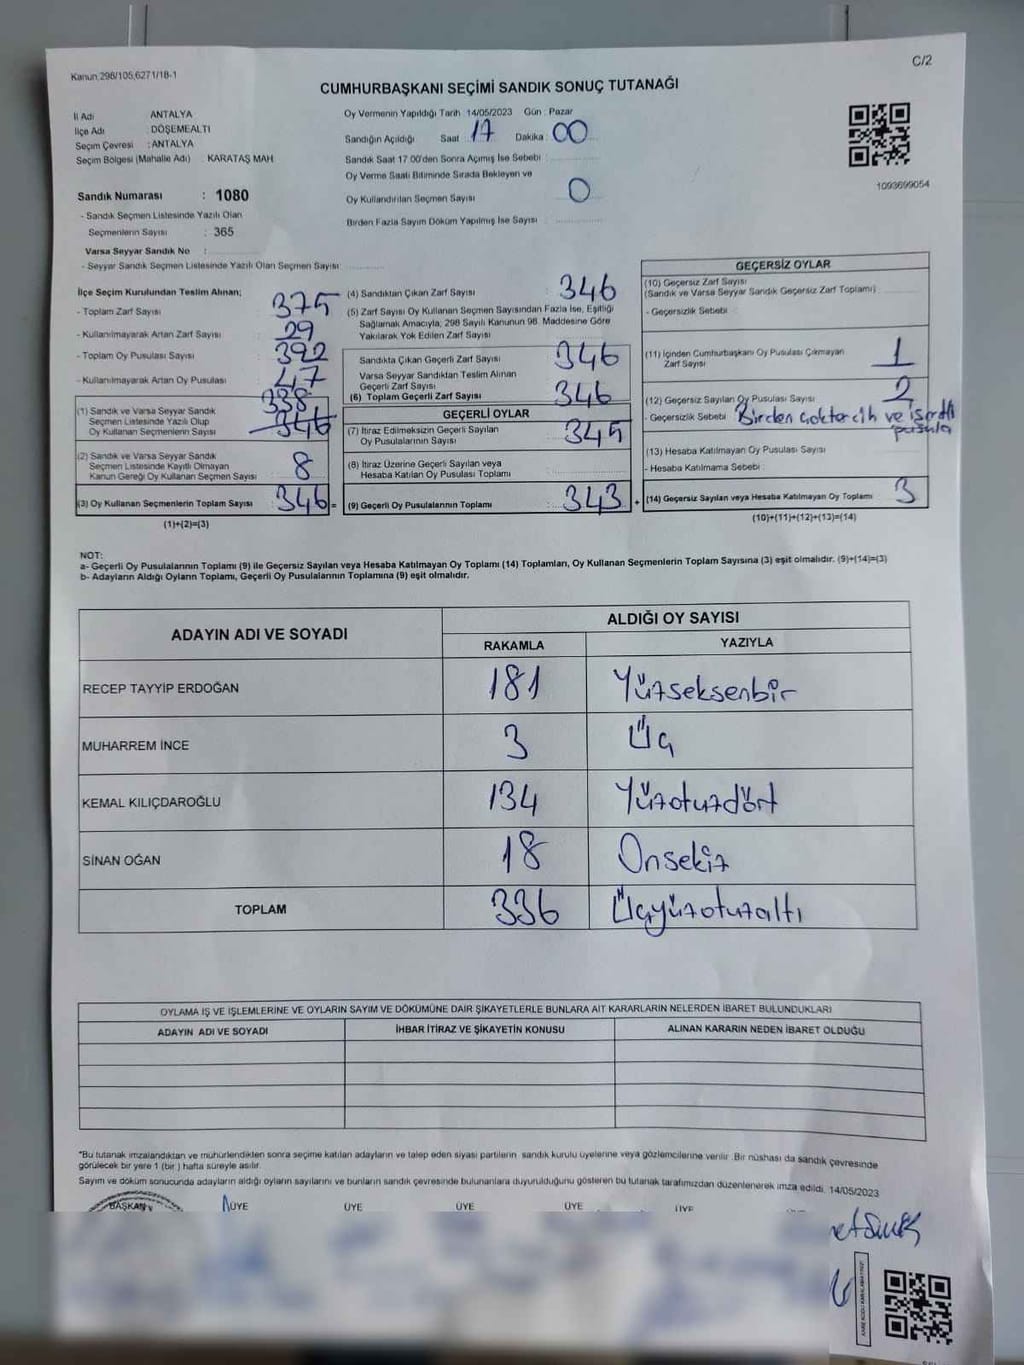 Kanun 298/105,6271/18-1
C/2
CUMHURBAŞKANI SEÇİMİ SANDIK SONUÇ TUTANAĞI
İl Adı ANTALYA
İlçe Adı : DÖŞEMEALTI
Seçim Çevresi : ANTALYA
Seçim Bölgesi (Mahalle Adı) : KARATAŞ MAH.
Sandık Numarası : 1080
- Sandık Seçmen Listesinde Yazılı Olan
Seçmenlerin Sayısı : 365
Varsa Seyyar Sandık No :
- Seyyar Sandık Seçmen Listesinde Yazılı Olan Seçmen Sayısı
Oy Vermenin Yapıldığı Tarih 14/05/2023 Gün : Pazar
Sandığın Açıldığı Saat 17 Dakika 00
Sandık Saat 17:00'den Sonra Açımış İse Sebebi
Oy Verme Saati Bitiminde Sırada Bekleyen ve
Oy Kullandırılan Seçmen Sayısı 0
Birden Fazla Sayım Döküm Yapılmış İse Sayısı
1093699054
İlçe Seçim Kurulundan Teslim Alınan;
- Toplam Zarf Sayısı 375
- Kullanılmayarak Artan Zarf Sayısı : 29
- Toplam Oy Pusulası Sayısı 392
- Kullanılmayarak Artan Oy Pusulası 47
(1) Sandık ve Varsa Seyyar Sandık 338
Seçmen Listesinde Yazılı Olup
Oy Kullanan Seçmenlerin Sayısı 346
(2) Sandık ve Varsa Seyyar Sandık
Seçmen Listesinde Kayıtlı Olmayan
Kanun Gereği Oy Kullanan Seçmen Sayısı 8
(3) Oy Kullanan Seçmenlerin Toplam Sayısı 346 =
(1)+(2)=(3)
(4) Sandıktan Çıkan Zarf Sayısı : 346
(5) Zarf Sayısı Oy Kullanan Seçmen Sayısından Fazla İse, Eşitliği
Sağlamak Amacıyla; 298 Sayılı Kanunun 98. Maddesine Göre
Yakılarak Yok Edilen Zarf Sayısı
Sandıkta Çıkan Geçerli Zarf Sayısı 346
Varsa Seyyar Sandıktan Teslim Alınan
Geçerli Zarf Sayısı
(6) Toplam Geçerli Zarf Sayısı 346
GEÇERLİ OYLAR
(7) İtiraz Edilmeksizin Geçerli Sayılan
Oy Pusulalarının Sayısı 345
(8) İtiraz Üzerine Geçerli Sayılan veya
Hesaba Katılan Oy Pusulası Toplamı
(9) Geçerli Oy Pusulalarının Toplamı 343 +
GEÇERSİZ OYLAR
(10) Geçersiz Zarf Sayısı
(Sandık ve Varsa Seyyar Sandık Geçersiz Zarf Toplamı)
- Geçersizlik Sebebi
(11) İçinden Cumhurbaşkanı Oy Pusulası Çıkmayan
Zarf Sayısı 1
(12) Geçersiz Sayılan Oy Pusulası Sayısı 2
- Geçersizlik Sebebi Birden çok tercih ve işaretli
pusula
(13) Hesaba Katılmayan Oy Pusulası Sayısı
- Hesaba Katılmama Sebebi
(14) Geçersiz Sayılan veya Hesaba Katılmayan Oy Toplamı 3
(10)+(11)+(12)+(13)=(14)
NOT:
a- Geçerli Oy Pusulalarının Toplamı (9) ile Geçersiz Sayılan veya Hesaba Katılmayan Oy Toplamı (14) Toplamları, Oy Kullanan Seçmenlerin Toplam Sayısına (3) eşit olmalıdır. (9)+(14)=(3)
b- Adayların Aldığı Oyların Toplamı, Geçerli Oy Pusulalarının Toplamına (9) eşit olmalıdır.
ADAYIN ADI VE SOYADI
ALDIĞI OY SAYISI
RAKAMLA YAZIYLA
RECEP TAYYİP ERDOĞAN 181 Yüzseksenbir
MUHARREM İNCE 3 Üç
KEMAL KILIÇDAROĞLU 134 Yüzotuzdört
SİNAN OĞAN 18 Onsekiz
TOPLAM 336 Üçyüzotuzaltı
OYLAMA İŞ VE İŞLEMLERİNE VE OYLARIN SAYIM VE DÖKÜMÜNE DAİR ŞİKAYETLERLE BUNLARA AİT KARARLARIN NELERDEN İBARET BULUNDUKLARI
ADAYIN ADI VE SOYADI İHBAR İTİRAZ VE ŞİKAYETİN KONUSU ALINAN KARARIN NEDEN İBARET OLDUĞU
*Bu tutanak imzalandıktan ve mühürlendikten sonra seçime katılan adayların ve talep eden siyasi partilerin sandık kurulu üyelerine veya gözlemcilerine verilir .Bir nüshası da sandık çevresinde
görülecek bir yere 1 (bir ) hafta süreyle asılır.
Sayım ve döküm sonucunda adayların aldığı oyların sayılarını ve bunların sandık çevresinde bulunanlara duyurulduğunu gösteren bu tutanak tarafımızdan düzenlenerek imza edildi. 14/05/2023
BAŞKAN ÜYE ÜYE ÜYE ÜYE ÜYE